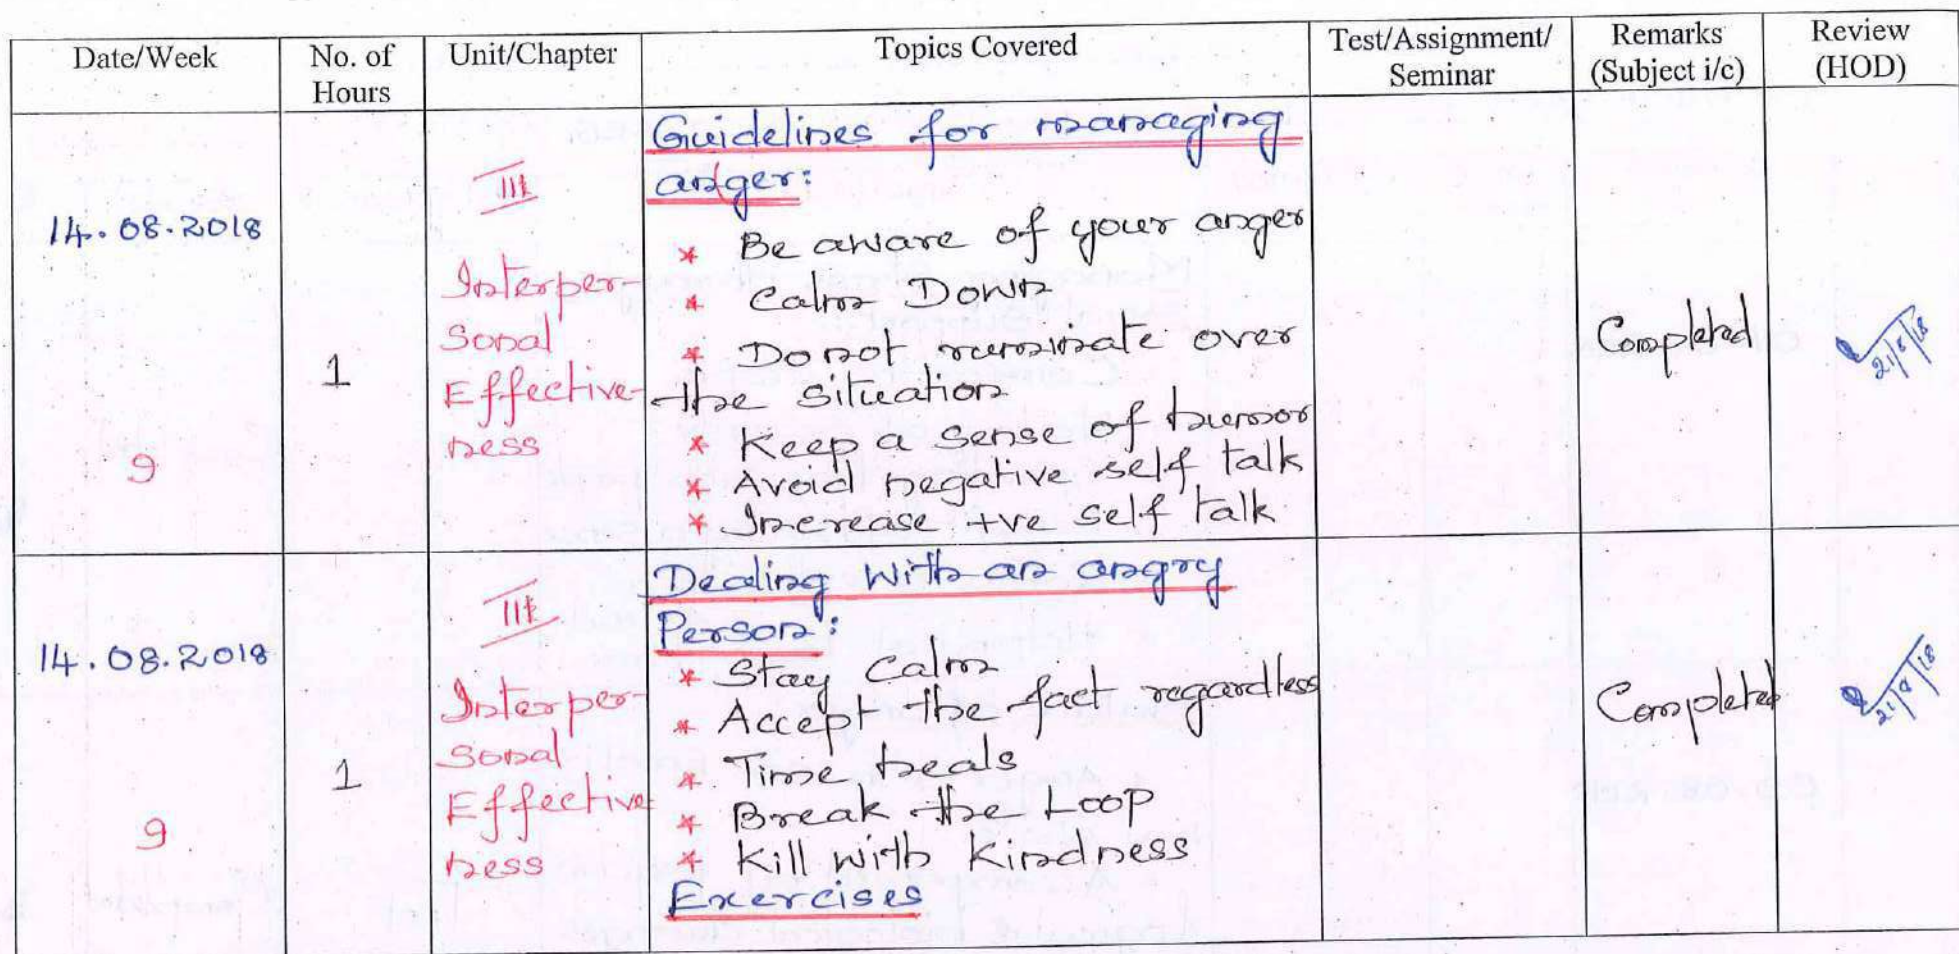 Date/Week No. of Hours Unit/Chapter Topics Covered Test/Assignment/ Seminar Remarks (Subject i/c) Review (HOD)
14.08.2018
9
1
III
Interper-
sonal
Effective-
ness
Guidelines for managing
anger:
* Be aware of your anger
* Calm Down
* Do not ruminate over
the situation
* Keep a sense of humor
* Avoid negative self talk
* Increase +ve self talk
Completed
21/8/18
14.08.2018
9
1
III
Interper-
sonal
Effective
ness
Dealing with an angry
Person:
* Stay Calm
* Accept the fact regardless
* Time heals
* Break the Loop
* Kill with kindness
Exercises
Completed